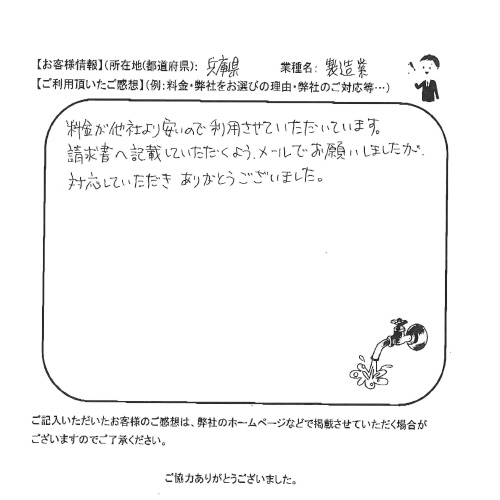 【お客様情報】(所在地(都道府県): 兵庫県 業種名: 製造業
【ご利用頂いたご感想】(例:料金・弊社をお選びの理由・弊社のご対応等…)
料金が他社より安いので利用させていただいています。
請求書へ記載していただくよう、メールでお願いしましたが、
対応していただき ありがとうございました。
ご記入いただいたお客様のご感想は、弊社のホームページなどで掲載させていただく場合が
ございますのでご了承ください。
ご協力ありがとうございました。